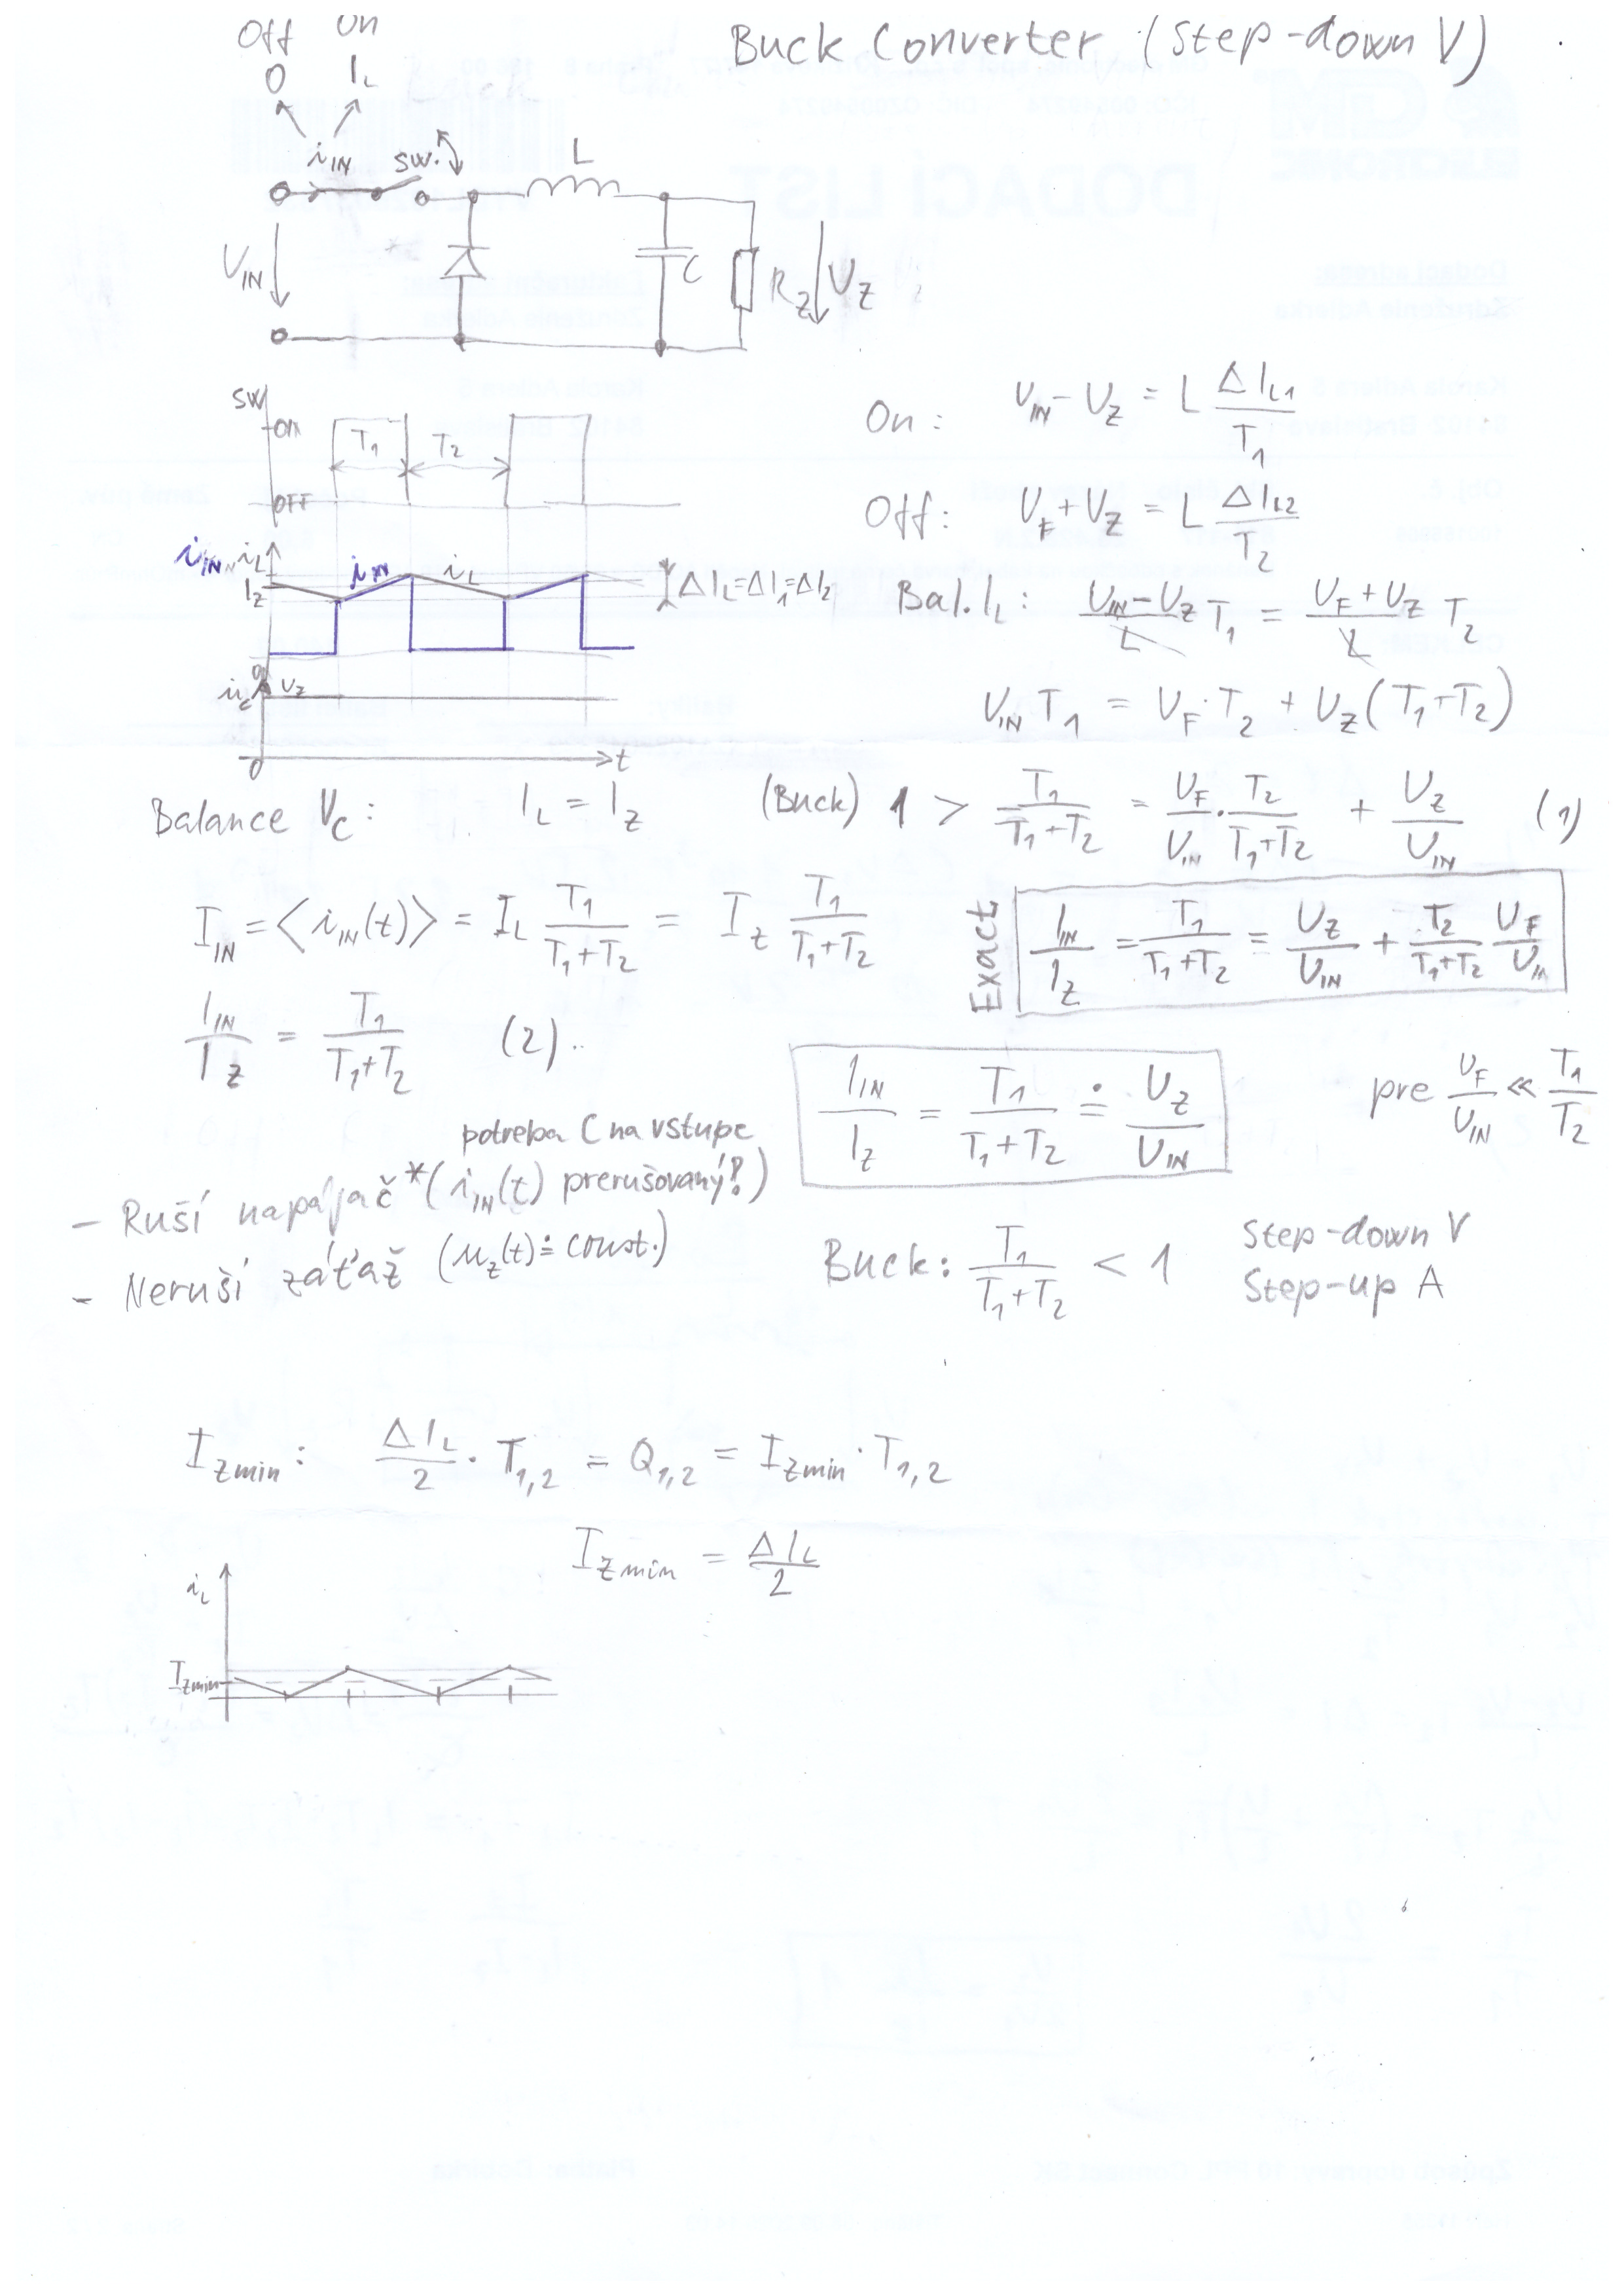 Off On
Buck Converter (Step-down V)
0 I_L
i_IN sw. L
U_IN C R_Z U_Z
sw
ON
T_1 T_2
OFF
On: U_IN - U_Z = L ΔI_L1 / T_1
Off: U_F + U_Z = L ΔI_L2 / T_2
i_IN, i_L
I_Z i_IN i_L ΔI_L = ΔI_1 = ΔI_2
Bal. I_L: (U_IN - U_Z)/L T_1 = (U_F + U_Z)/L T_2
0
u_C U_Z
U_IN T_1 = U_F · T_2 + U_Z (T_1 + T_2)
0 t
Balance V_C: I_L = I_Z
(Buck) 1 > T_1/(T_1+T_2) = U_F/U_IN · T_2/(T_1+T_2) + U_Z/U_IN (1)
I_IN = <i_IN(t)> = I_L T_1/(T_1+T_2) = I_Z T_1/(T_1+T_2)
Exact I_IN/I_Z = T_1/(T_1+T_2) = U_Z/U_IN + T_2/(T_1+T_2) U_F/U_IN
I_IN/I_Z = T_1/(T_1+T_2) (2)
I_IN/I_Z = T_1/(T_1+T_2) ≐ U_Z/U_IN pre U_F/U_IN ≪ T_1/T_2
potreba C na vstupe
- Ruší napájač * (i_IN(t) prerušovaný!)
- Neruší záťaž (u_Z(t) ≐ const.)
Buck: T_1/(T_1+T_2) < 1 Step-down V
Step-up A
I_Zmin: ΔI_L/2 · T_1,2 = Q_1,2 = I_Zmin · T_1,2
I_Zmin = ΔI_L/2
i_L
I_Zmin